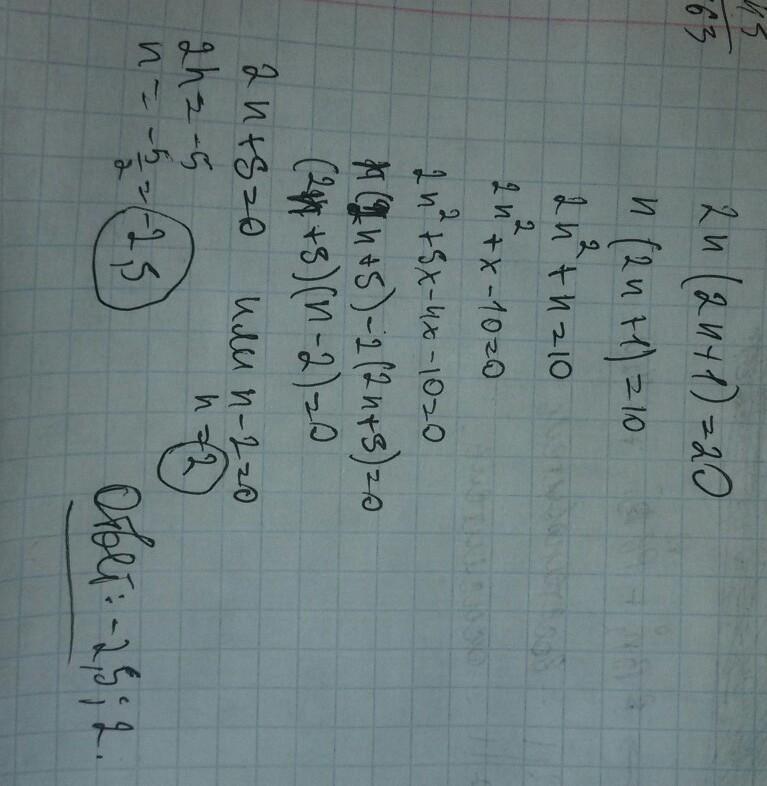 45
63
2n(2n+1)=20
n(2n+1)=10
2n²+n=10
2n²+x-10=0
2n²+5x-4x-10=0
n(2n+5)-2(2n+5)=0
(2n+5)(n-2)=0
2n+5=0 или n-2=0
2n=-5 n=2
n=-5/2=-2,5
Ответ: -2,5; 2.